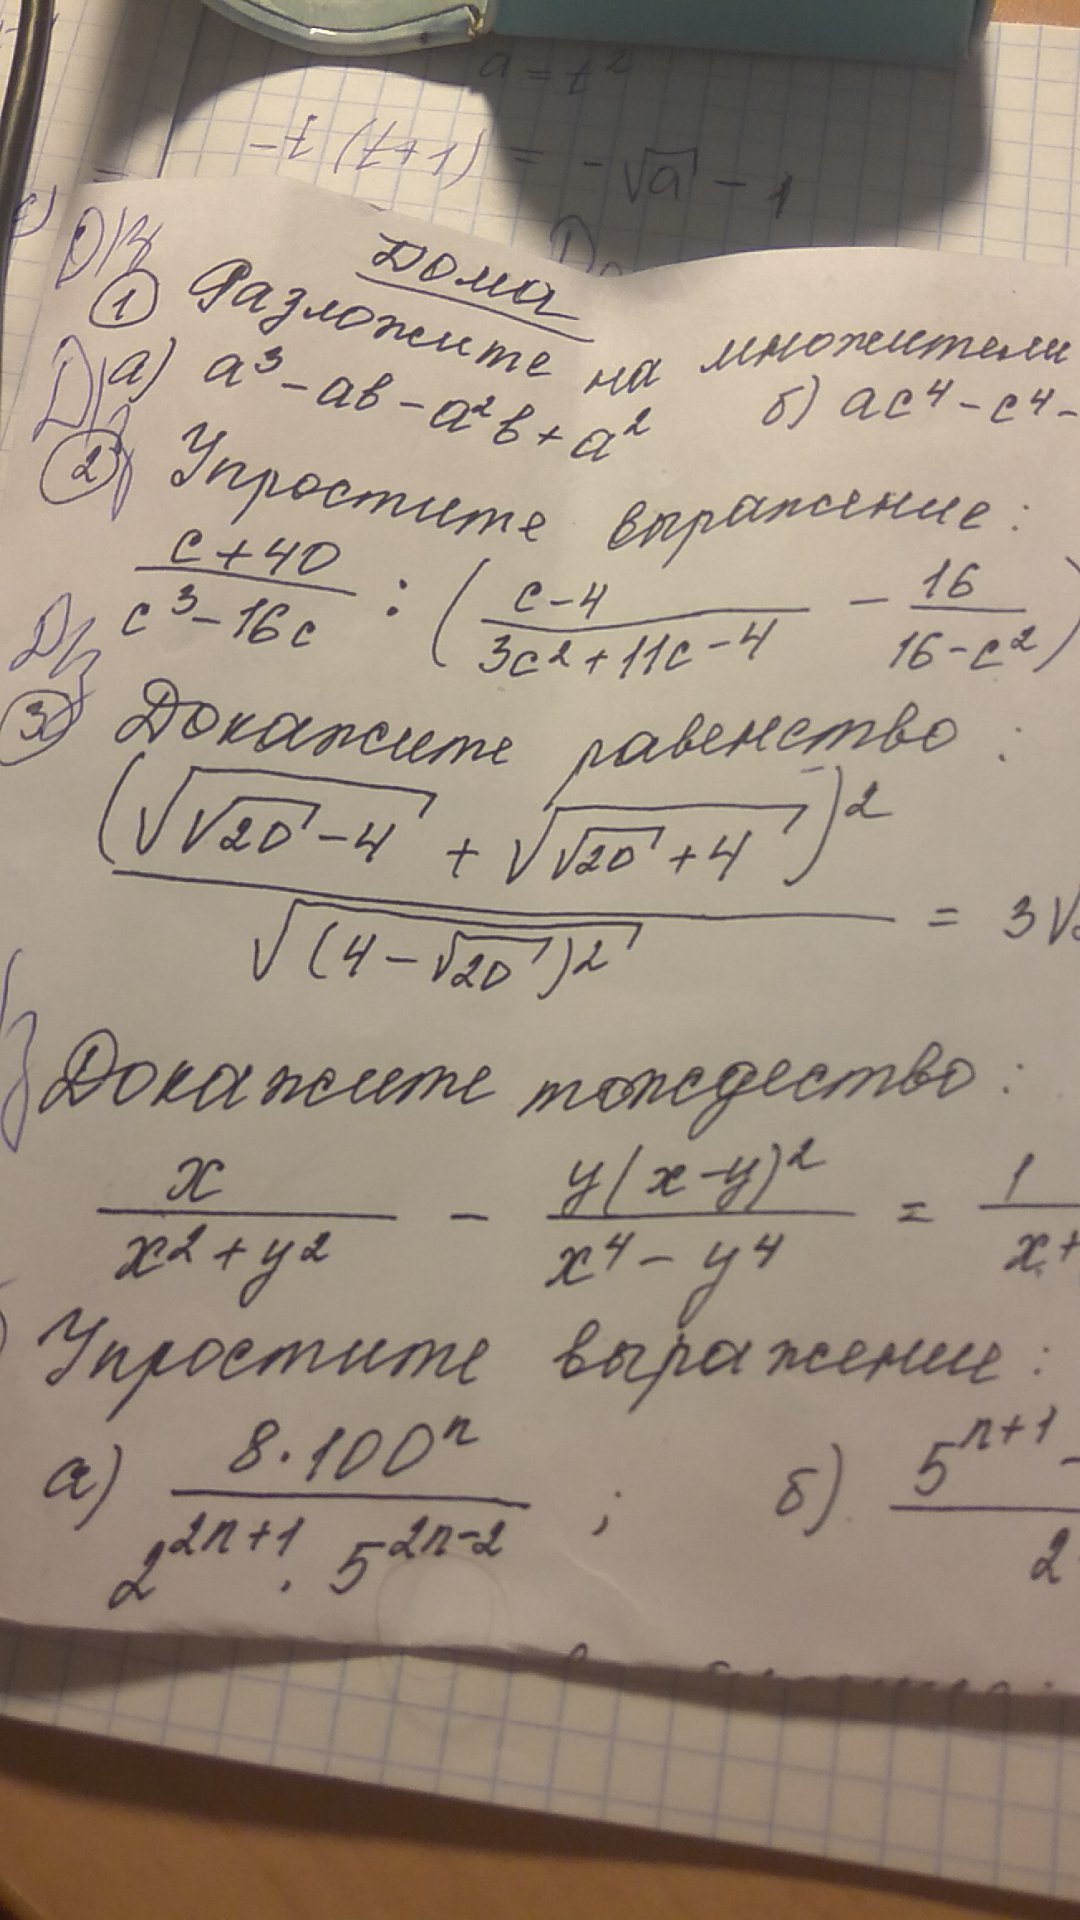 a = t²
-t (t+1) = -√a - 1
Дома
① Разложите на множители
а) a³ - ab - a²b + a² б) ac⁴ - c⁴ -
② Упростите выражение:
(c+40)/(c³-16c) : ((c-4)/(3c²+11c-4) - 16/(16-c²))
③ Докажите равенство:
(√(√20 - 4) + √(√20 + 4))² / √((4-√20)²) = 3√
Докажите тождество:
x/(x²+y²) - y(x-y)²/(x⁴-y⁴) = 1/(x+
Упростите выражение:
а) 8·100ⁿ / (2²ⁿ⁺¹ · 5²ⁿ⁻²) ; б) 5ⁿ⁺¹ - / 2